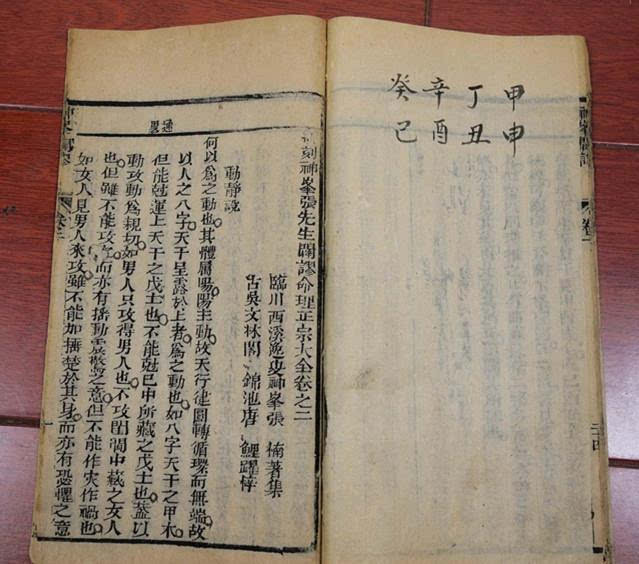 甲申
丁丑
辛酉
癸巳
新刻神峯張先生闢謬命理正宗大全卷之二
臨川西溪逸叟神峯張 楠著集
古吳文林閣 錦池唐 鯉躍梓
動靜說
何以爲之動也其體屬陽陽主動故天行健圓轉循環而無端故
以人之八字天干呈露於上者爲之動也如八字天干之甲木
但能尅運上天干之戊土也不能尅巳中所藏之戊土也葢以
動攻動爲親切如男人只攻得男人也不攻閨閫中藏之女人
也但雖不能攻之而亦有搖動震驚之意但不能作灾作禍也
如女人見男人來攻雖不能加捶楚於其身而亦有恐懼之意